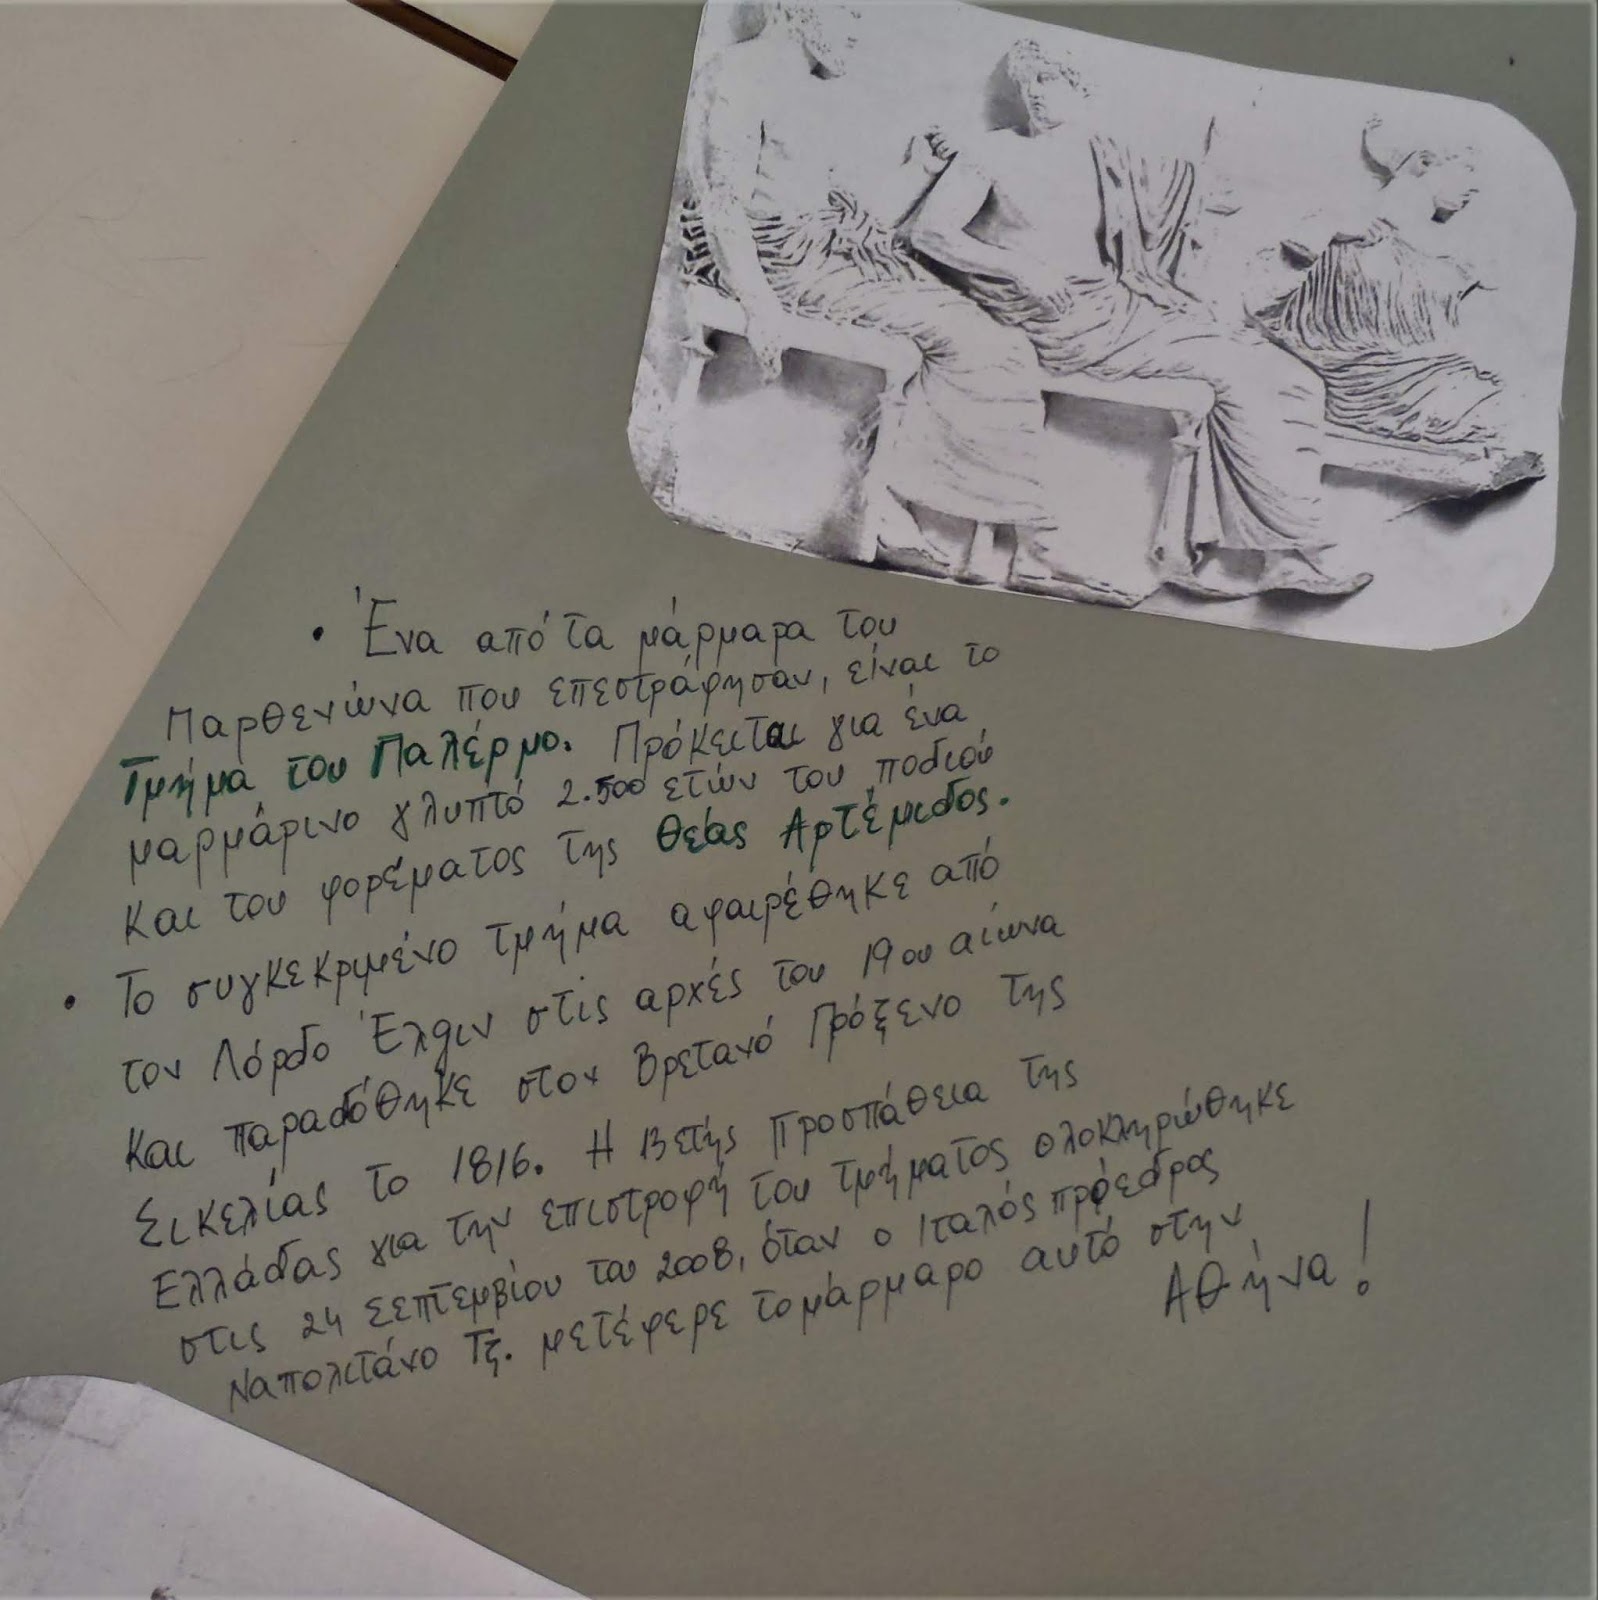 • Ένα από τα μάρμαρα του
Παρθενώνα που επεστράφησαν, είναι το
Τμήμα του Παλέρμο. Πρόκειται για ένα
μαρμάρινο γλυπτό 2.500 ετών του ποδιού
και του φορέματος της θεάς Αρτέμιδος.
• Το συγκεκριμένο τμήμα αφαιρέθηκε από
τον Λόρδο Έλγιν στις αρχές του 19ου αιώνα
και παραδόθηκε στον Βρετανό Πρόξενο της
Σικελίας το 1816. Η 13ετής προσπάθεια της
Ελλάδας για την επιστροφή του τμήματος ολοκληρώθηκε
στις 24 Σεπτεμβίου του 2008, όταν ο Ιταλός πρόεδρος
Ναπολιτάνο Τζ. μετέφερε το μάρμαρο αυτό στην
Αθήνα!